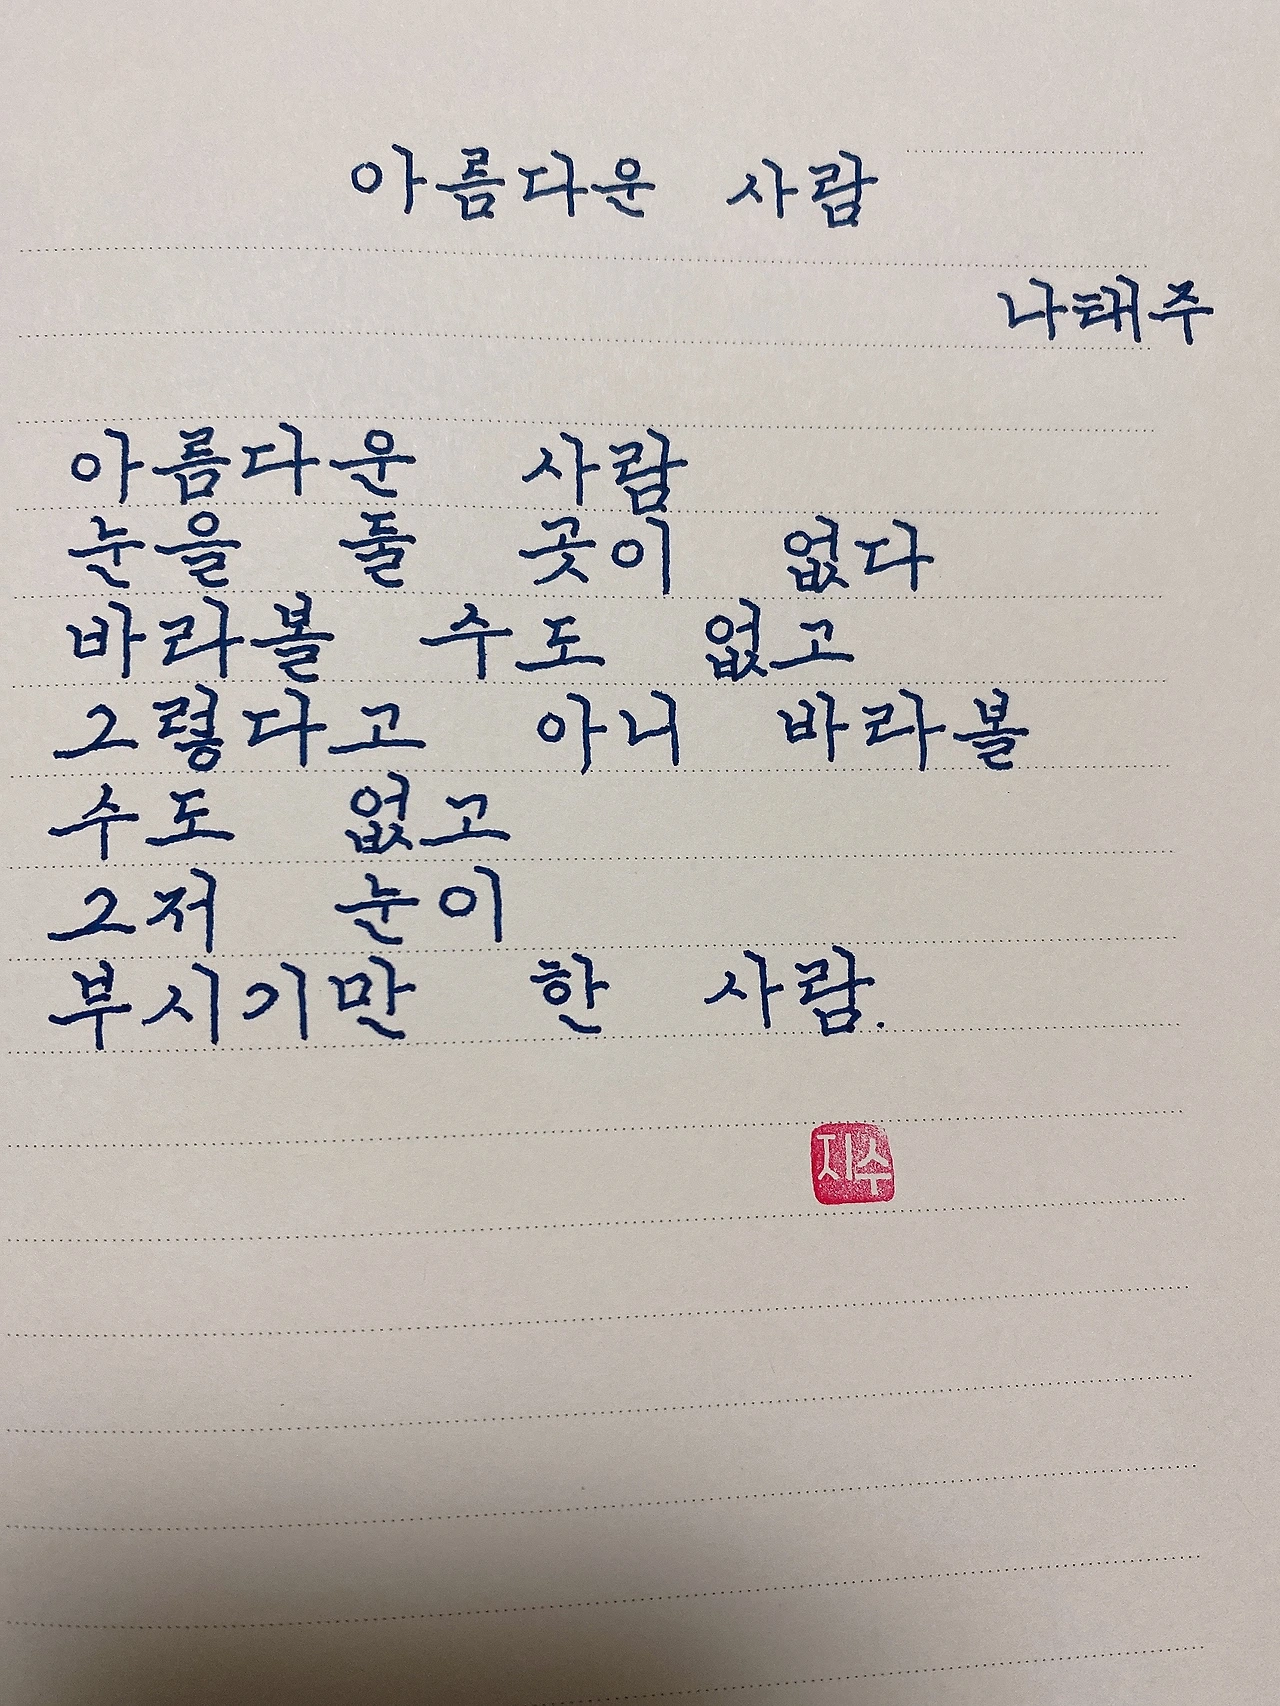 아름다운 사람
나태주
아름다운 사람
눈을 둘 곳이 없다
바라볼 수도 없고
그렇다고 아니 바라볼
수도 없고
그저 눈이
부시기만 한 사람.
지수